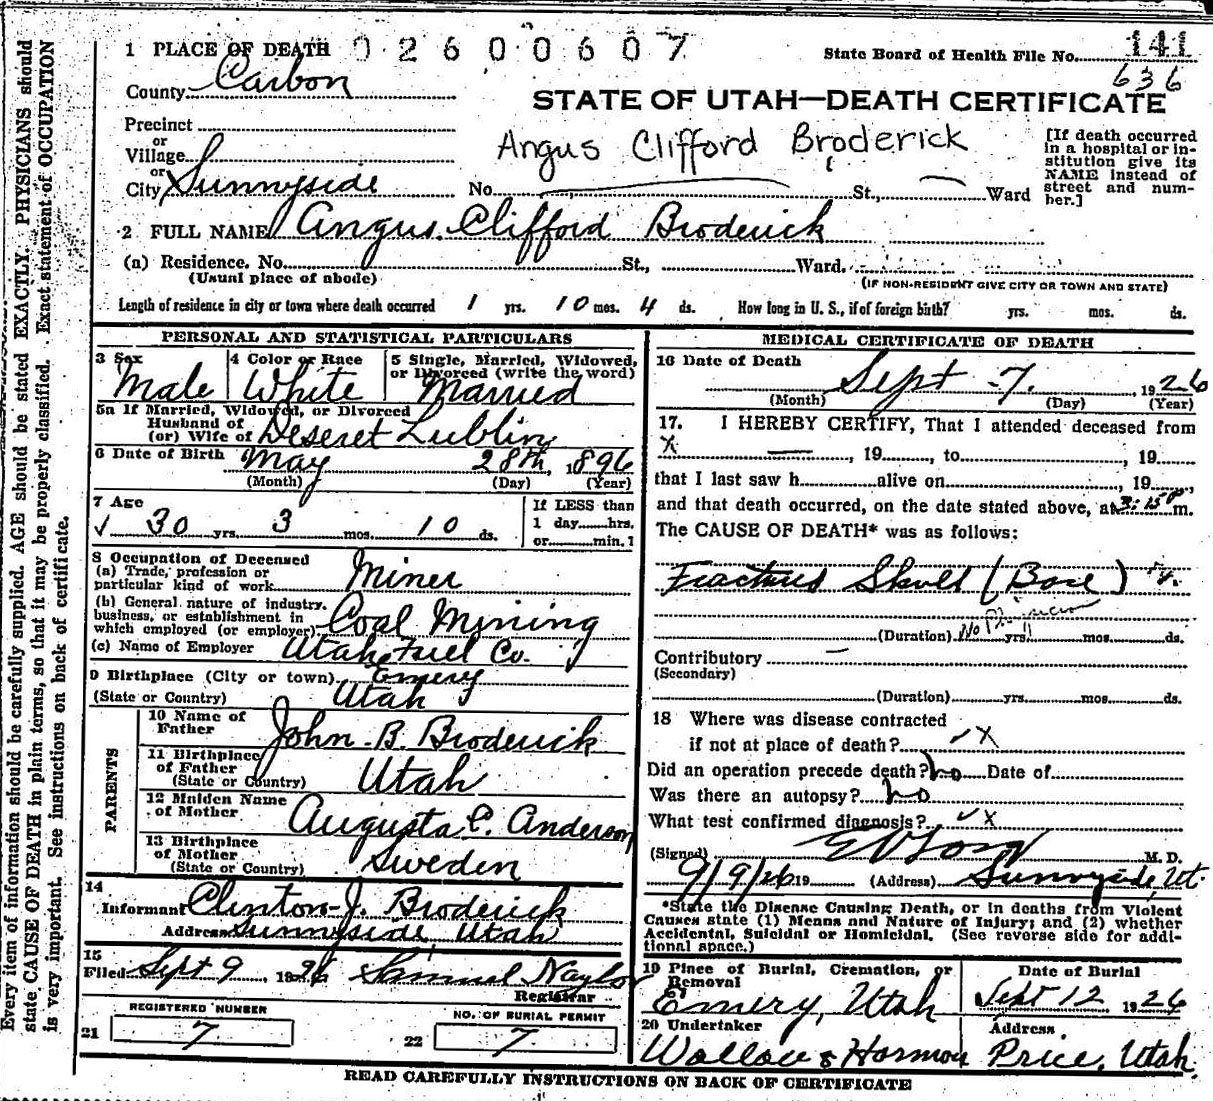 1 PLACE OF DEATH 02600607
State Board of Health File No. 141
636
County Carbon
STATE OF UTAH—DEATH CERTIFICATE
Precinct
or
Village
or
City Sunnyside No. St., Ward
Angus Clifford Broderick
[If death occurred in a hospital or institution give its NAME instead of street and number.]
2 FULL NAME Angus Clifford Broderick
(a) Residence. No. St., Ward.
(Usual place of abode) (IF NON-RESIDENT GIVE CITY OR TOWN AND STATE)
Length of residence in city or town where death occurred 1 yrs. 10 mos. 4 ds. How long in U. S., if of foreign birth? yrs. mos. ds.
PERSONAL AND STATISTICAL PARTICULARS
3 Sex Male
4 Color or Race White
5 Single, Married, Widowed, or Divorced (write the word) Married
5a If Married, Widowed, or Divorced
Husband of
(or) Wife of Deseret Lublin
6 Date of Birth May 28th, 1896
(Month) (Day) (Year)
7 Age
30 yrs. 3 mos. 10 ds.
If LESS than
1 day hrs.
or min.?
8 Occupation of Deceased
(a) Trade, profession or
particular kind of work Miner
(b) General nature of industry,
business, or establishment in
which employed (or employer) Coal Mining
(c) Name of Employer Utah Fuel Co.
9 Birthplace (City or town) Emery
(State or Country) Utah
PARENTS
10 Name of
Father John B. Broderick
11 Birthplace
of Father
(State or Country) Utah
12 Maiden Name
of Mother Augusta C. Anderson
13 Birthplace
of Mother
(State or Country) Sweden
14
Informant Clinton J. Broderick
Address Sunnyside, Utah
15
Filed Sept 9, 1926 Samuel Naylor
Registrar
REGISTERED NUMBER
21 7
NO. OF BURIAL PERMIT
22 7
MEDICAL CERTIFICATE OF DEATH
16 Date of Death
Sept 7, 1926
(Month) (Day) (Year)
17. I HEREBY CERTIFY, That I attended deceased from
X — , 19 , to , 19
that I last saw h alive on , 19 ,
and that death occurred, on the date stated above, at 3:15 P m.
The CAUSE OF DEATH* was as follows:
Skull (Base)
(Duration) No Physician yrs. mos. ds.
Contributory —
(Secondary)
(Duration) yrs. mos. ds.
18 Where was disease contracted
if not at place of death? X
Did an operation precede death? no Date of
Was there an autopsy? no
What test confirmed diagnosis? X
(Signed) M. D.
9/9/26 19 (Address) Sunnyside, Ut.
*State the Disease Causing Death, or in deaths from Violent
Causes state (1) Means and Nature of Injury; and (2) whether
Accidental, Suicidal or Homicidal. (See reverse side for addi-
tional space.)
19 Place of Burial, Cremation, or
Removal
Emery, Utah
Date of Burial
Sept 12 1926
20 Undertaker
Wallace & Harmon
Address
Price, Utah.
READ CAREFULLY INSTRUCTIONS ON BACK OF CERTIFICATE
Every item of information should be carefully supplied. AGE should be stated EXACTLY. PHYSICIANS should
state CAUSE OF DEATH in plain terms, so that it may be properly classified. Exact statement of OCCUPATION
is very important. See instructions on back of certificate.